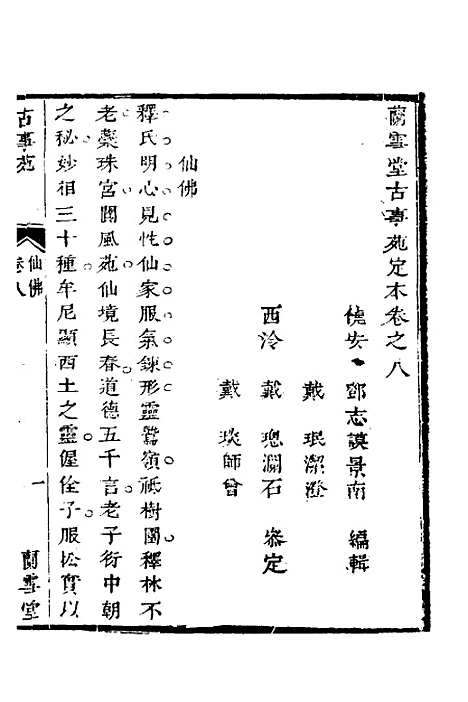 蘭雪堂古事苑定本卷之八
德安 鄧志謨景南 編輯
戴 珉潔澄
西泠 戴 璁瀾石 叅定
戴 琰師曾
仙佛
釋氏明心見性仙家服氣鍊形靈鷲嶺祗樹園釋林不
老蘂珠宮閬風苑仙境長春道德五千言老子衍中朝
之秘妙相三十種牟尼顯西土之靈偓佺子服松實以
古事苑 仙佛 卷八 一 蘭雪堂